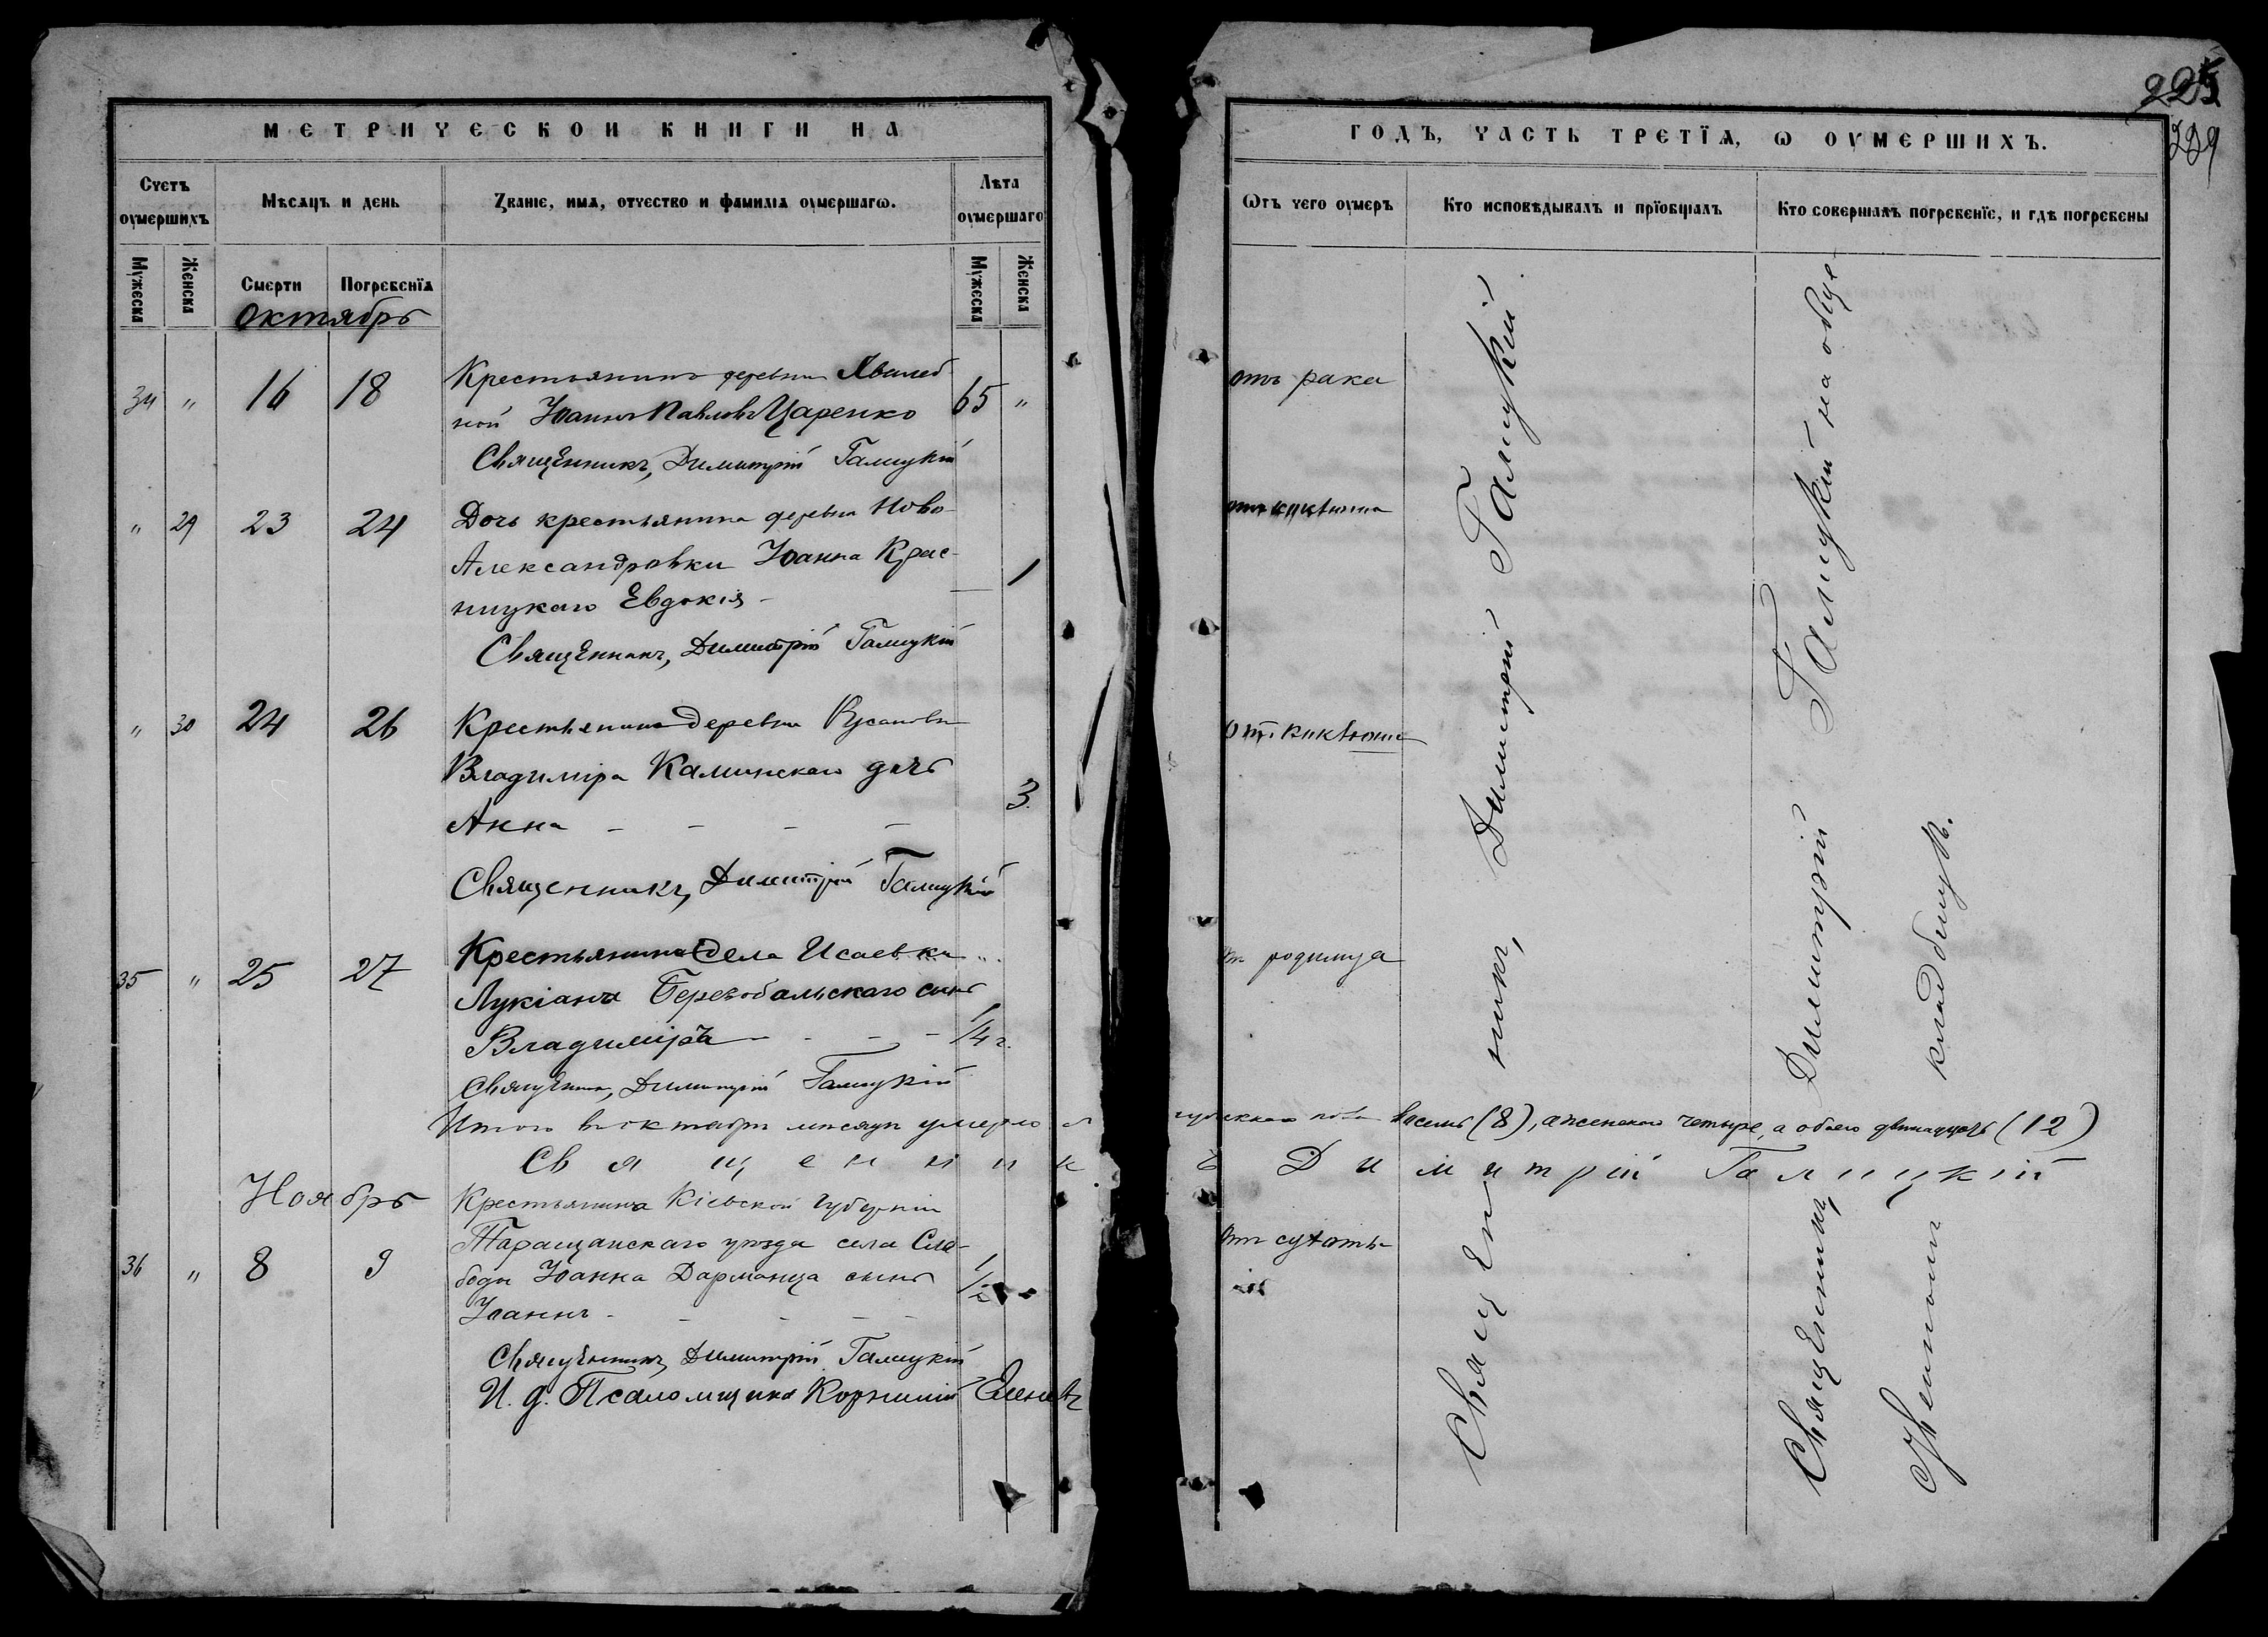 МЕТРИЧЕСКОИ КНИГИ НА
Счетъ оумершихъ
Мѣсяцъ и день
Званіе, имя, отчество и фамилія оумершагω.
Лѣта оумершаго
Мужеска
Женска
Смерти
Погребенїя
Мужеска
Женска
Октябрь
34 " 16 18 Крестьянинъ деревни Хвалеб
ной Іоаннъ Павловъ Царенко 65 "
Священникъ, Димитрій Галицкій
" 29 23 24 Дочь крестьянина деревни Ново-
Александровки Іоанна Крас-
ницкаго Евдокія - 1
Священникъ, Димитрій Галицкій
" 30 24 26 Крестьянина деревни Русановки
Владиміра Каминскаго дочь
Анна - - - - 3.
Священникъ, Димитрій Галицкій
35 " 25 27 Крестьянина села Исаевки "
Лукіана Перевобальскаго сынъ
Владиміръ - - - - 1/4 г.
Священникъ, Димитрій Галицкій
Итого въ октябрѣ мѣсяцѣ умерло
Священник
Ноябрь
Крестьянина Кіевской губерніи
Таращанскаго уѣзда села Сло-
36 " 8 9 боды Іоанна Дарманца сынъ 1/2
Іоаннъ - - - -
Священникъ, Димитрій Галицкій
И. д. Псаломщика Корнилій
225
229
ГОДЪ, ЧАСТЬ ТРЕТЇЯ, Ѡ ОУМЕРШИХЪ.
Ѡтъ чего оумеръ
Кто исповѣдывалъ и прїобщалъ
Кто совершалъ погребенїе, и гдѣ погребены
отъ рака
от коклюша
От. коклюша
от родимца
восемь (8), а женскаго четыре, а обоего двенадцать (12)
ъ Димитрій Галицкій
от сухоты
Священникъ, Димитрій Галицкій
Священникъ, Димитрій Галицкій на обще-
кладбищѣ.